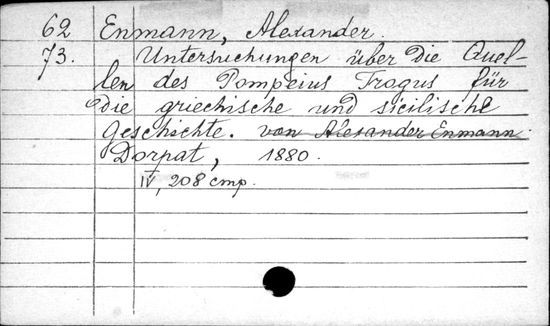 62 Enmann, Alexander.
73. Untersuchungen über die Quel-
len des Pompeius Trogus für
die griechische und sicilische
Geschichte. von Alexander Enmann.
Dorpat, 1880.
IV, 208 стр.